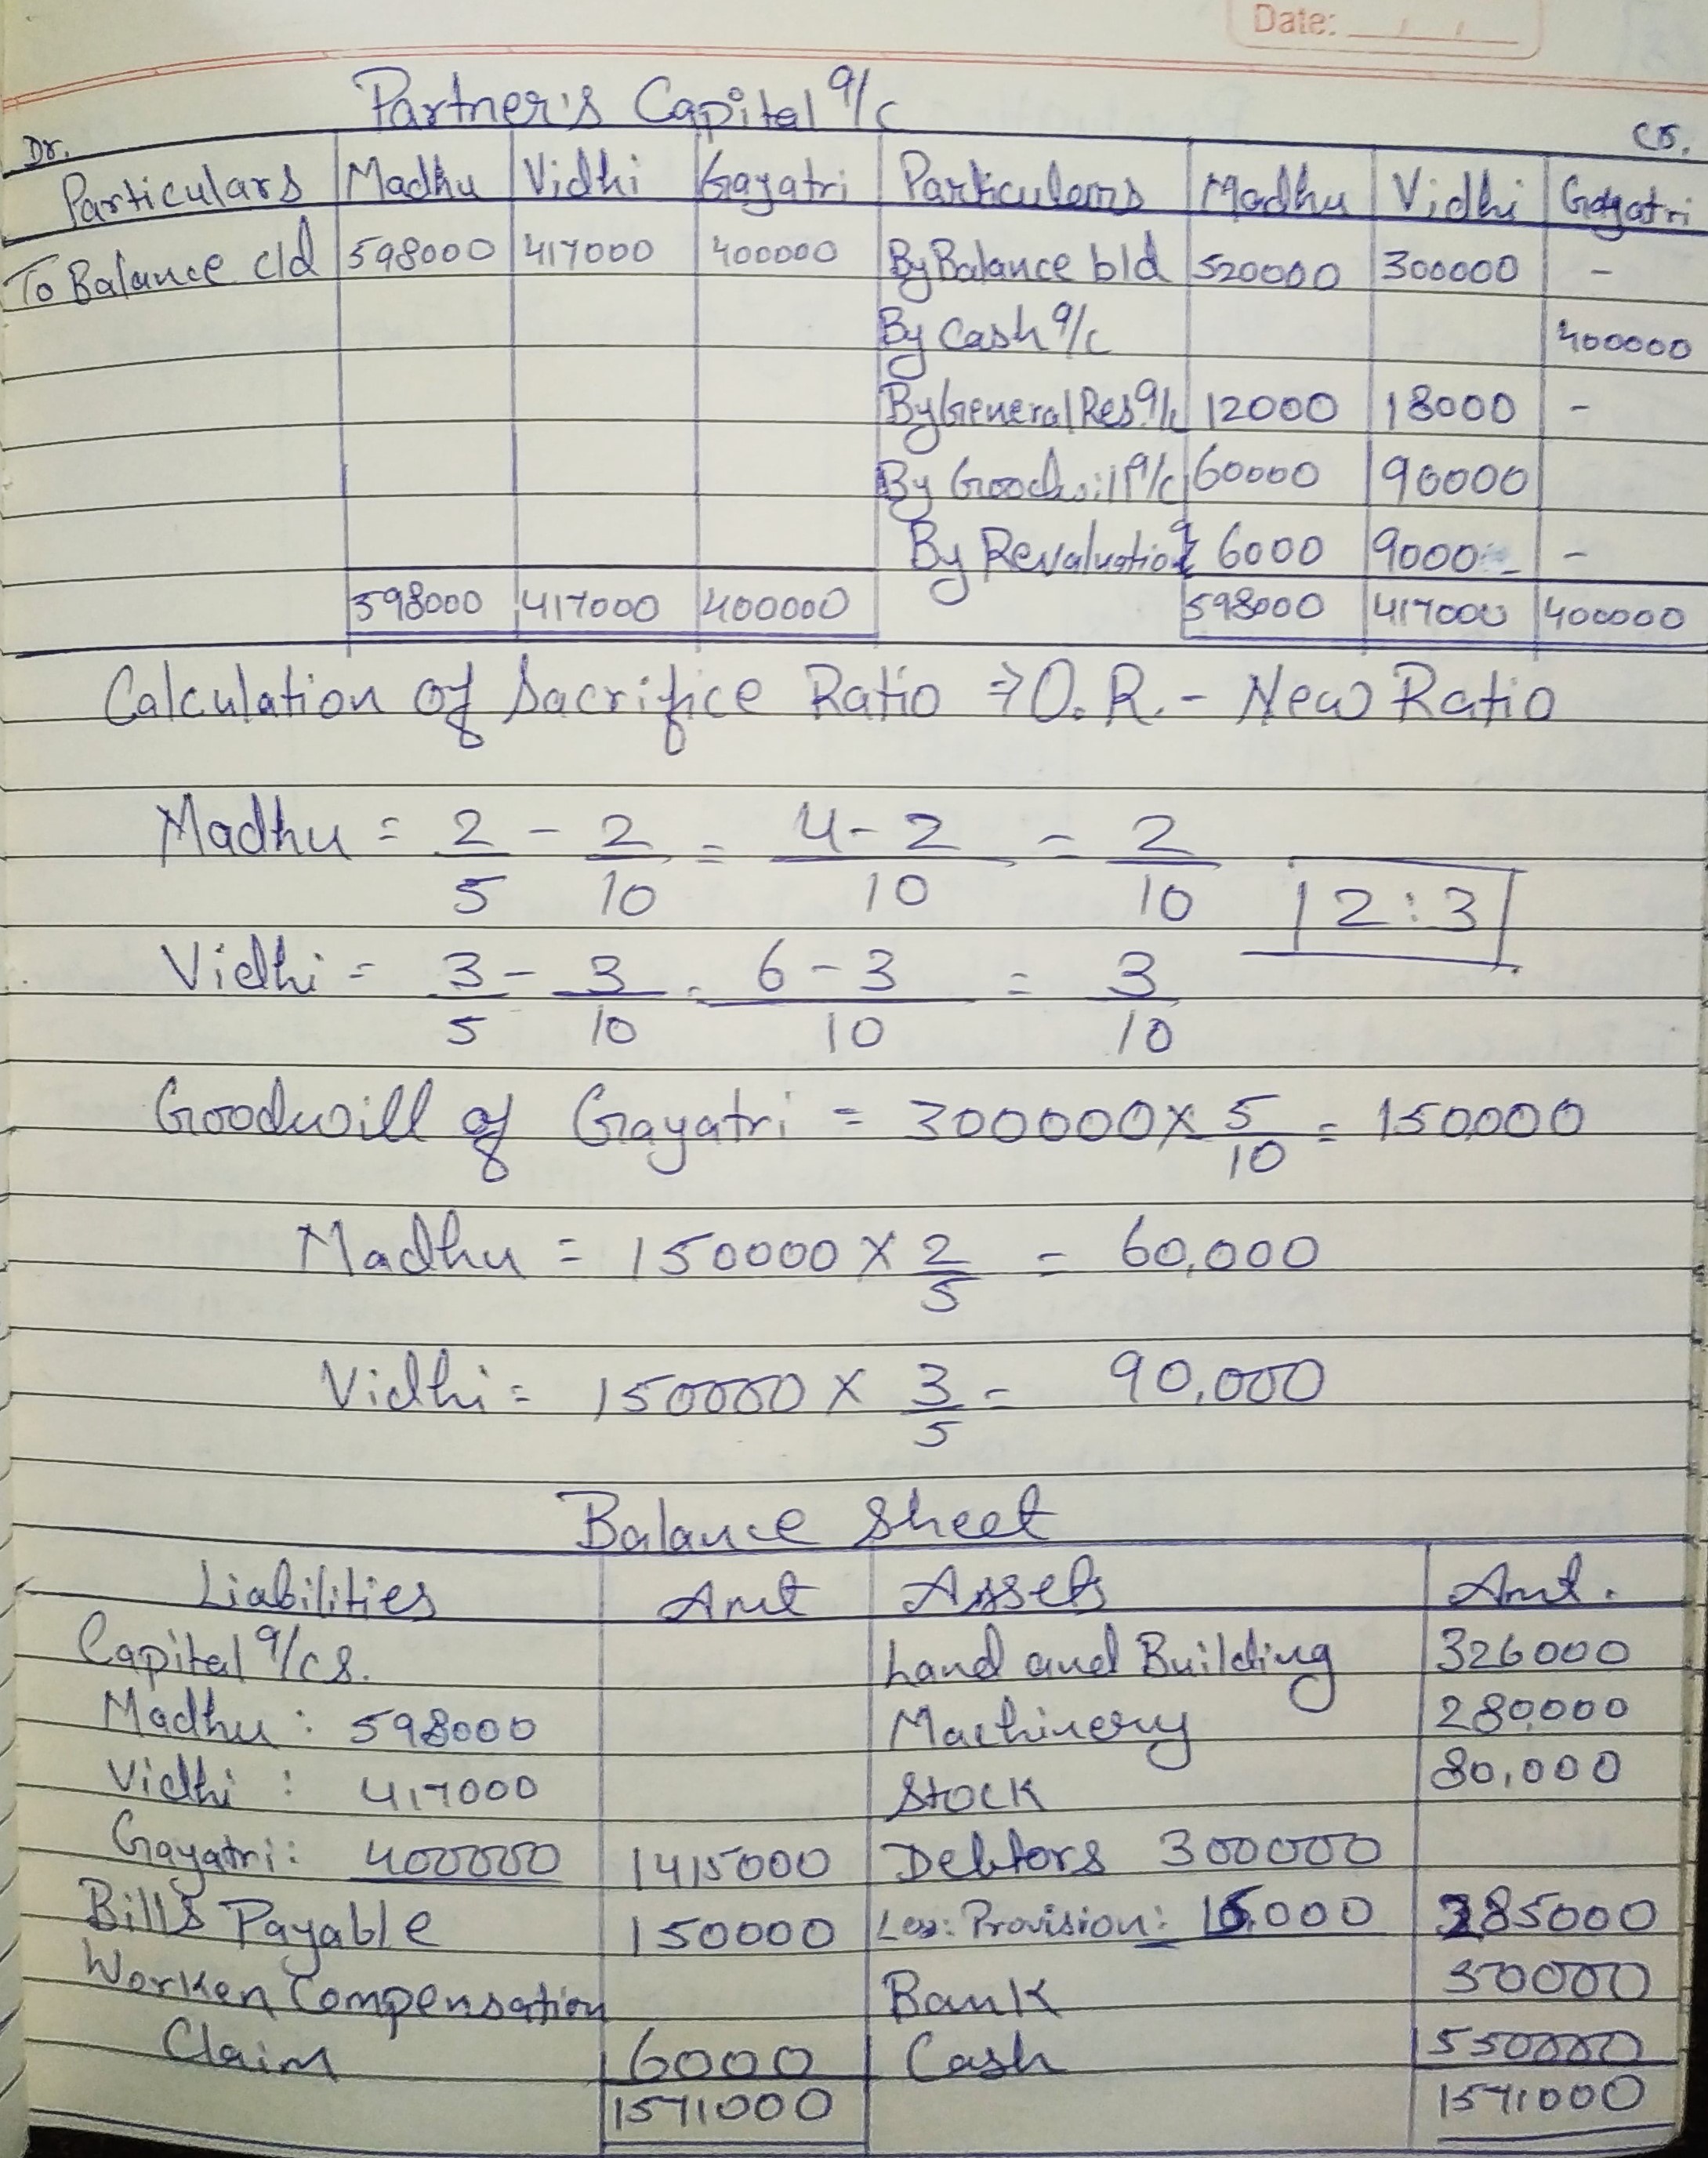 Date: __/__/__
Partner's Capital a/c
Dr. Cr.
Particulars Madhu Vidhi Gayatri Particulars Madhu Vidhi Gayatri
To Balance c/d 598000 417000 400000 By Balance b/d 520000 300000 -
By Cash a/c 400000
By General Res. a/c 12000 18000 -
By Goodwill a/c 60000 90000
By Revaluation 6000 9000 -
598000 417000 400000 598000 417000 400000
Calculation of Sacrifice Ratio ⇒ O.R. - New Ratio
Madhu = 2/5 - 2/10 = 4-2/10 = 2/10
2:3
Vidhi = 3/5 - 3/10 = 6-3/10 = 3/10
Goodwill of Gayatri = 300000 × 5/10 = 150000
Madhu = 150000 × 2/5 = 60,000
Vidhi = 150000 × 3/5 = 90,000
Balance Sheet
Liabilities Amt Assets Amt.
Capital a/cs. Land and Building 326000
Madhu : 598000 Machinery 280000
Vidhi : 417000 Stock 80,000
Gayatri: 400000 1415000 Debtors 300000
Bills Payable 150000 Less: Provision: 15000 285000
Worken Compensation Bank 50000
Claim 6000 Cash 550000
1571000 1571000